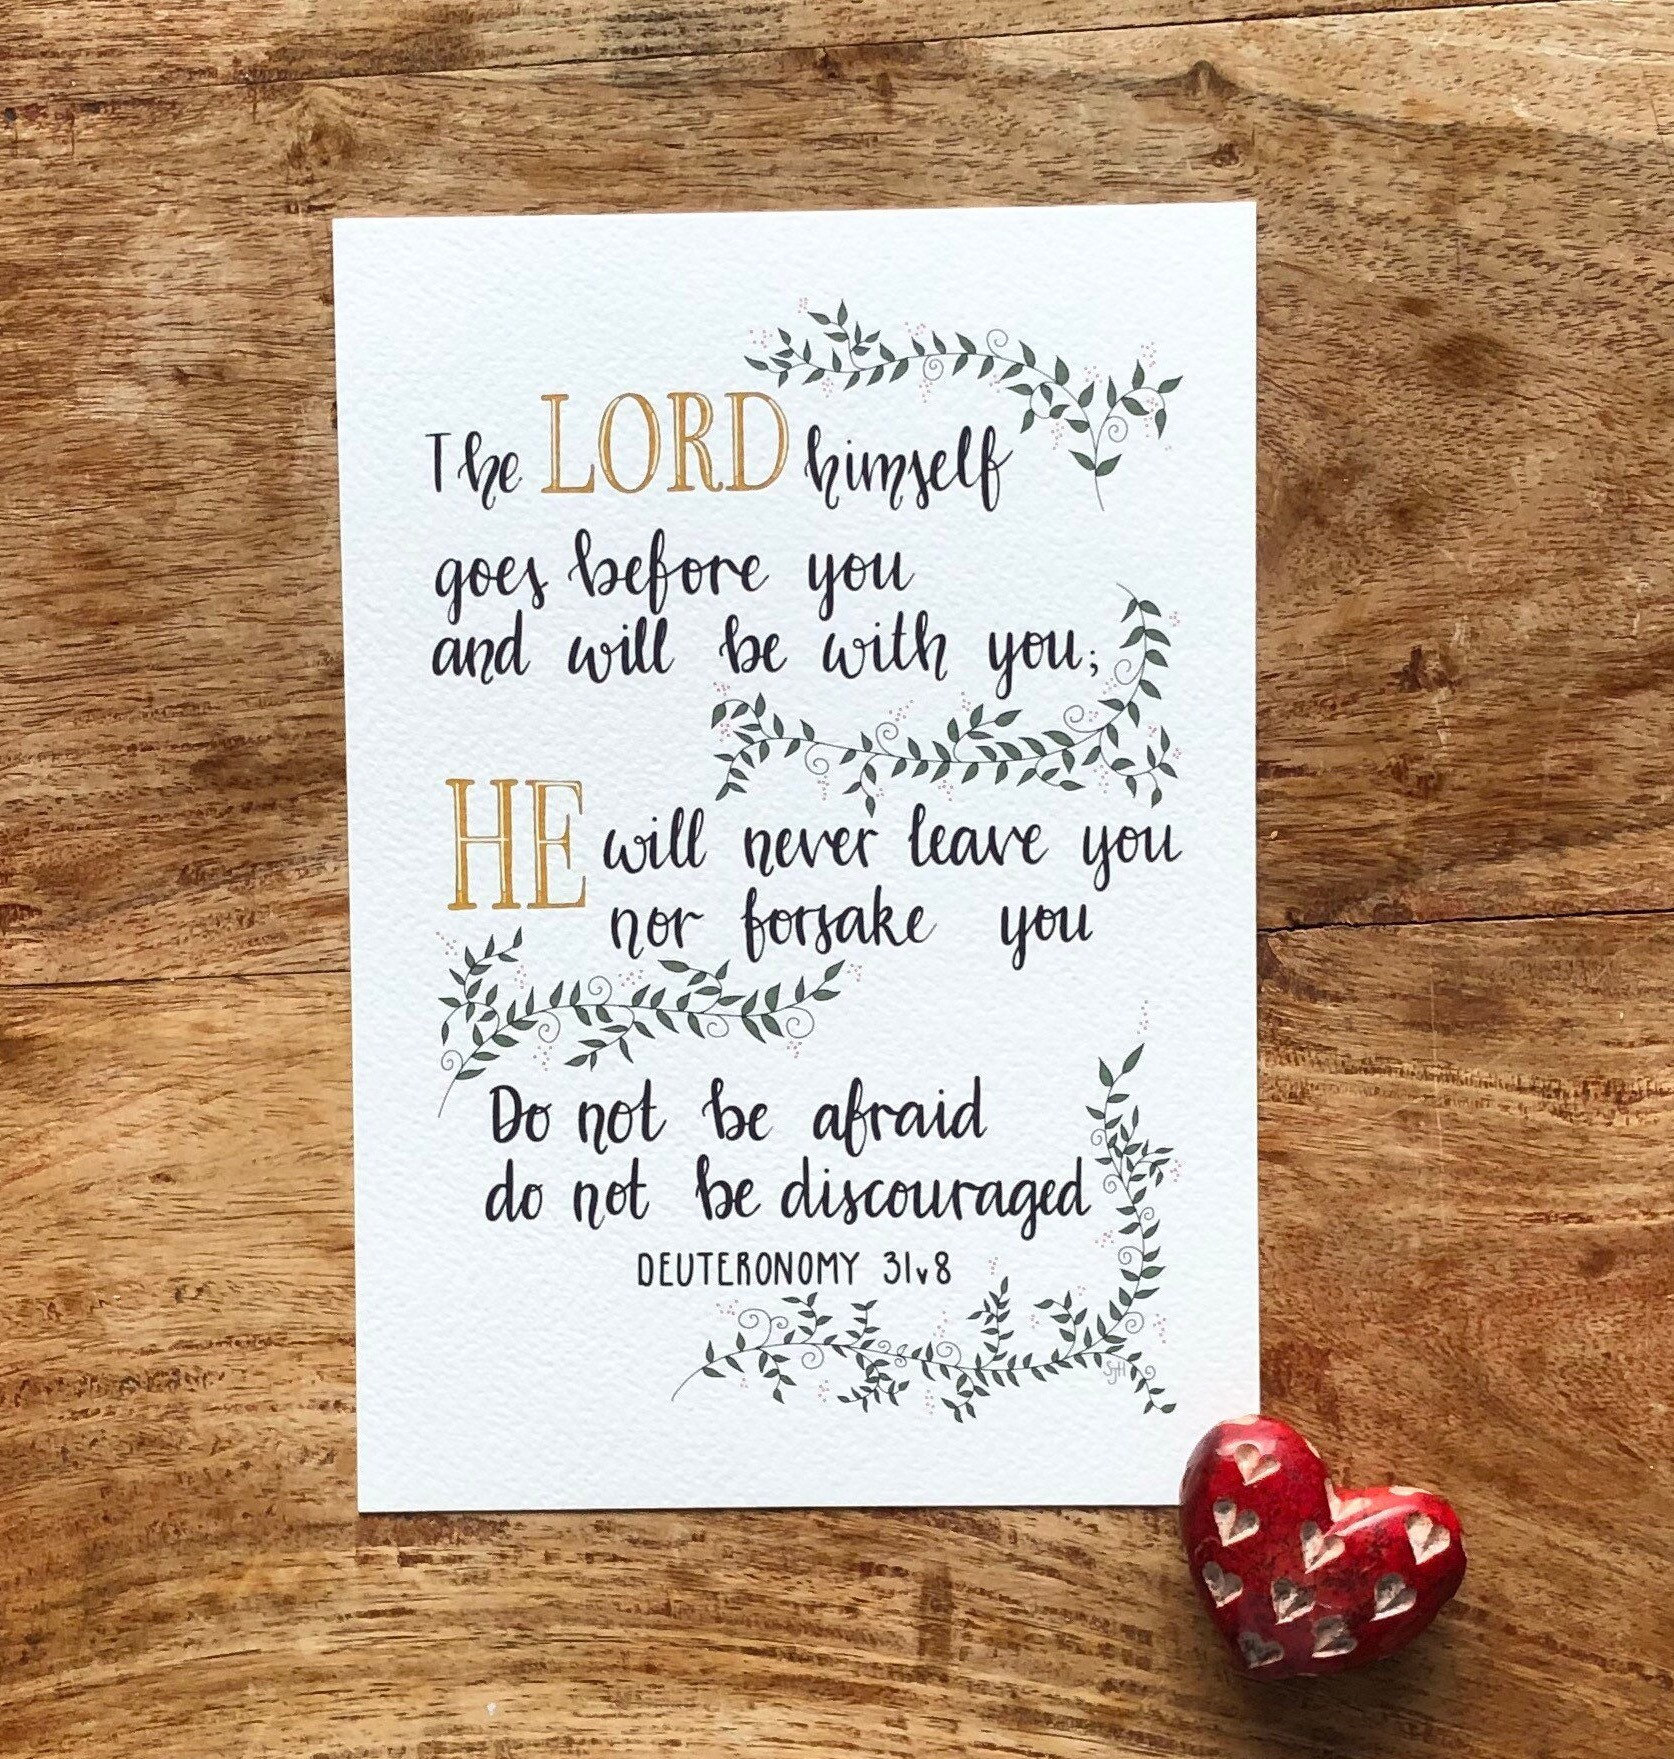 The LORD himself
goes before you
and will be with you;
HE will never leave you
nor forsake you
Do not be afraid
do not be discouraged
DEUTERONOMY 31v8
SJH